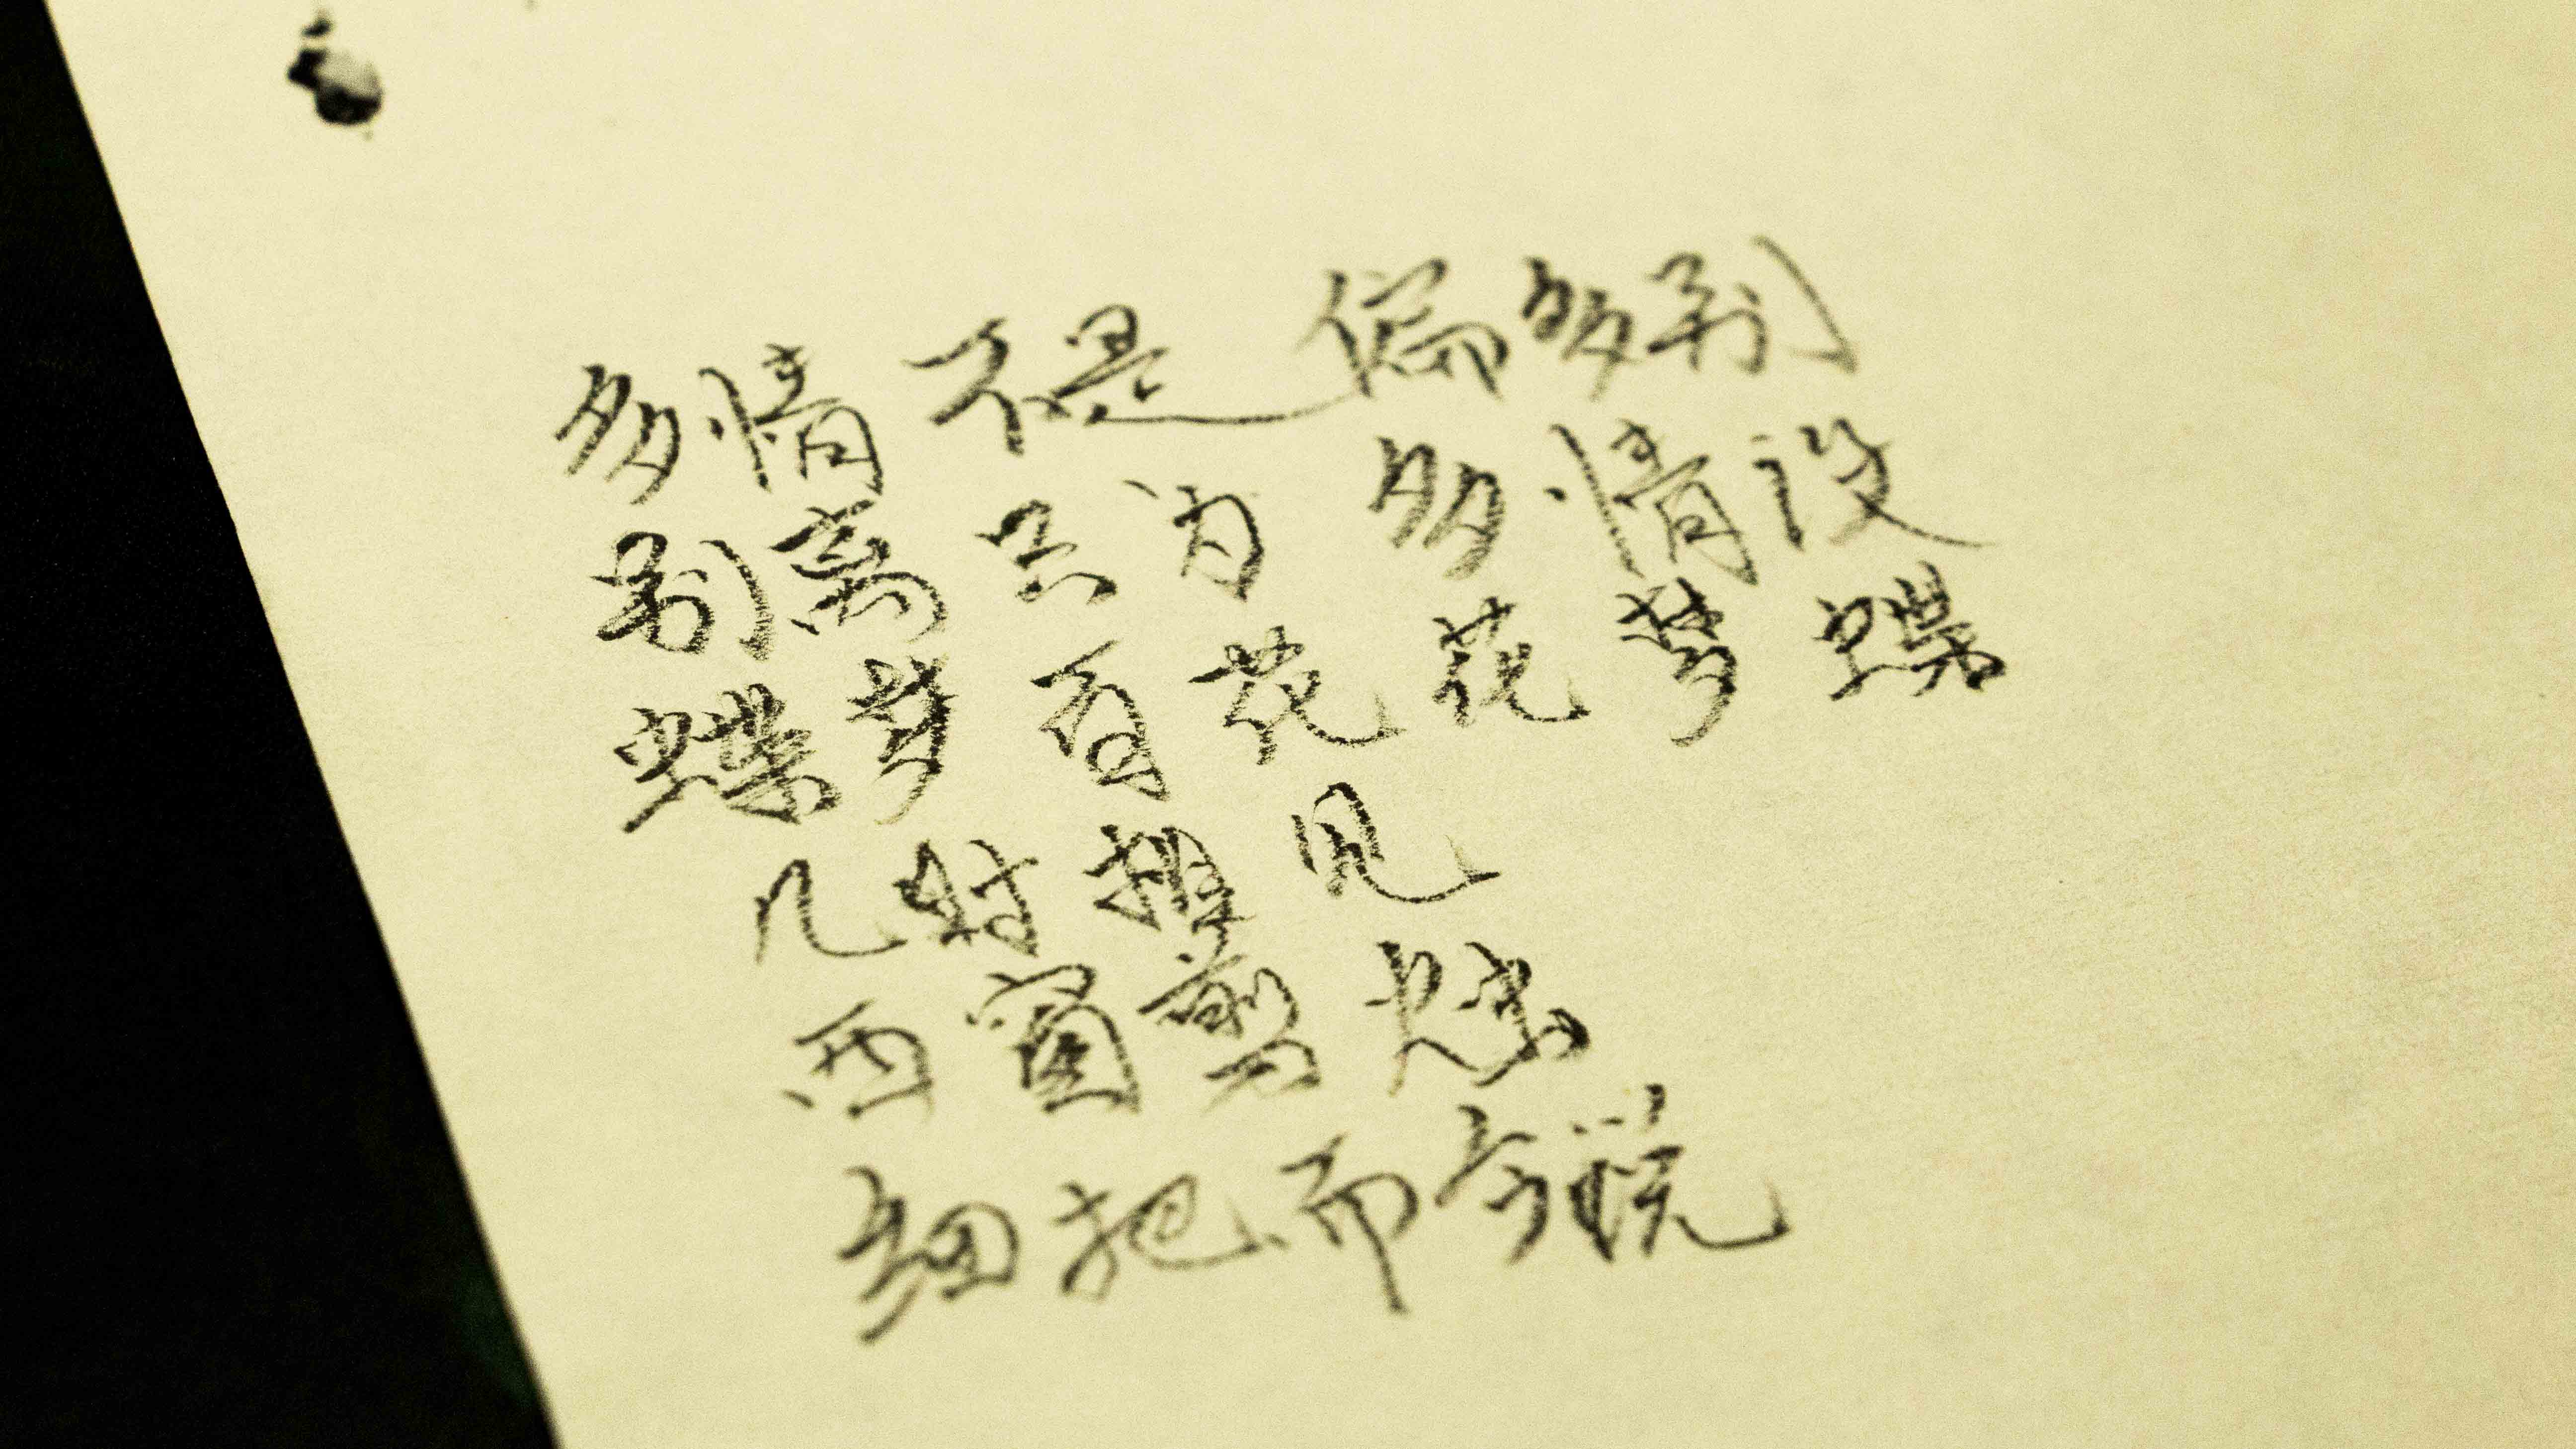 多情不是偏多别
别离只为多情设
蝶梦百花花梦蝶
几时相见
西窗剪烛
细把而今说